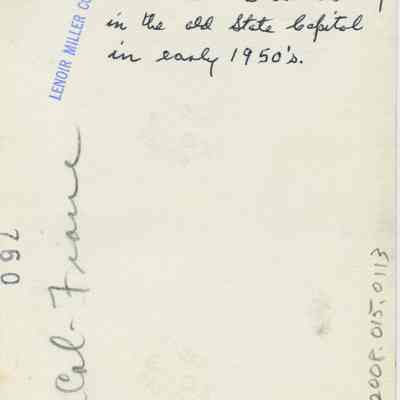 in the old State Capitol
in early 1950's.
LENOIR MILLER CO
Col- Frame
760
2008.015.0113